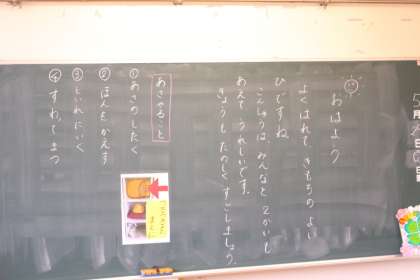 おはよう
よくはれて、きもちの よい
ひですね。
こんしゅうは、みんなと 2かいし
あえて うれしいです。
きょうも たのしく すごしましょう。
あさやること
①あさのしたく
②ほんをかえす
③といれにいく
④すわってまつ
5
月
日
日